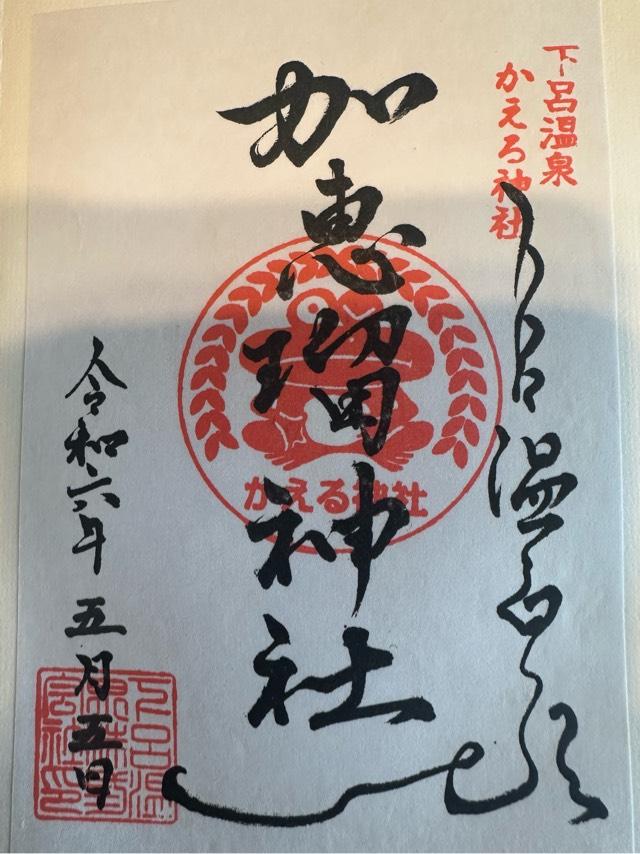 下呂温泉
かえる神社
下呂温泉
加恵瑠神社
かえる神社
令和六年 五月五日